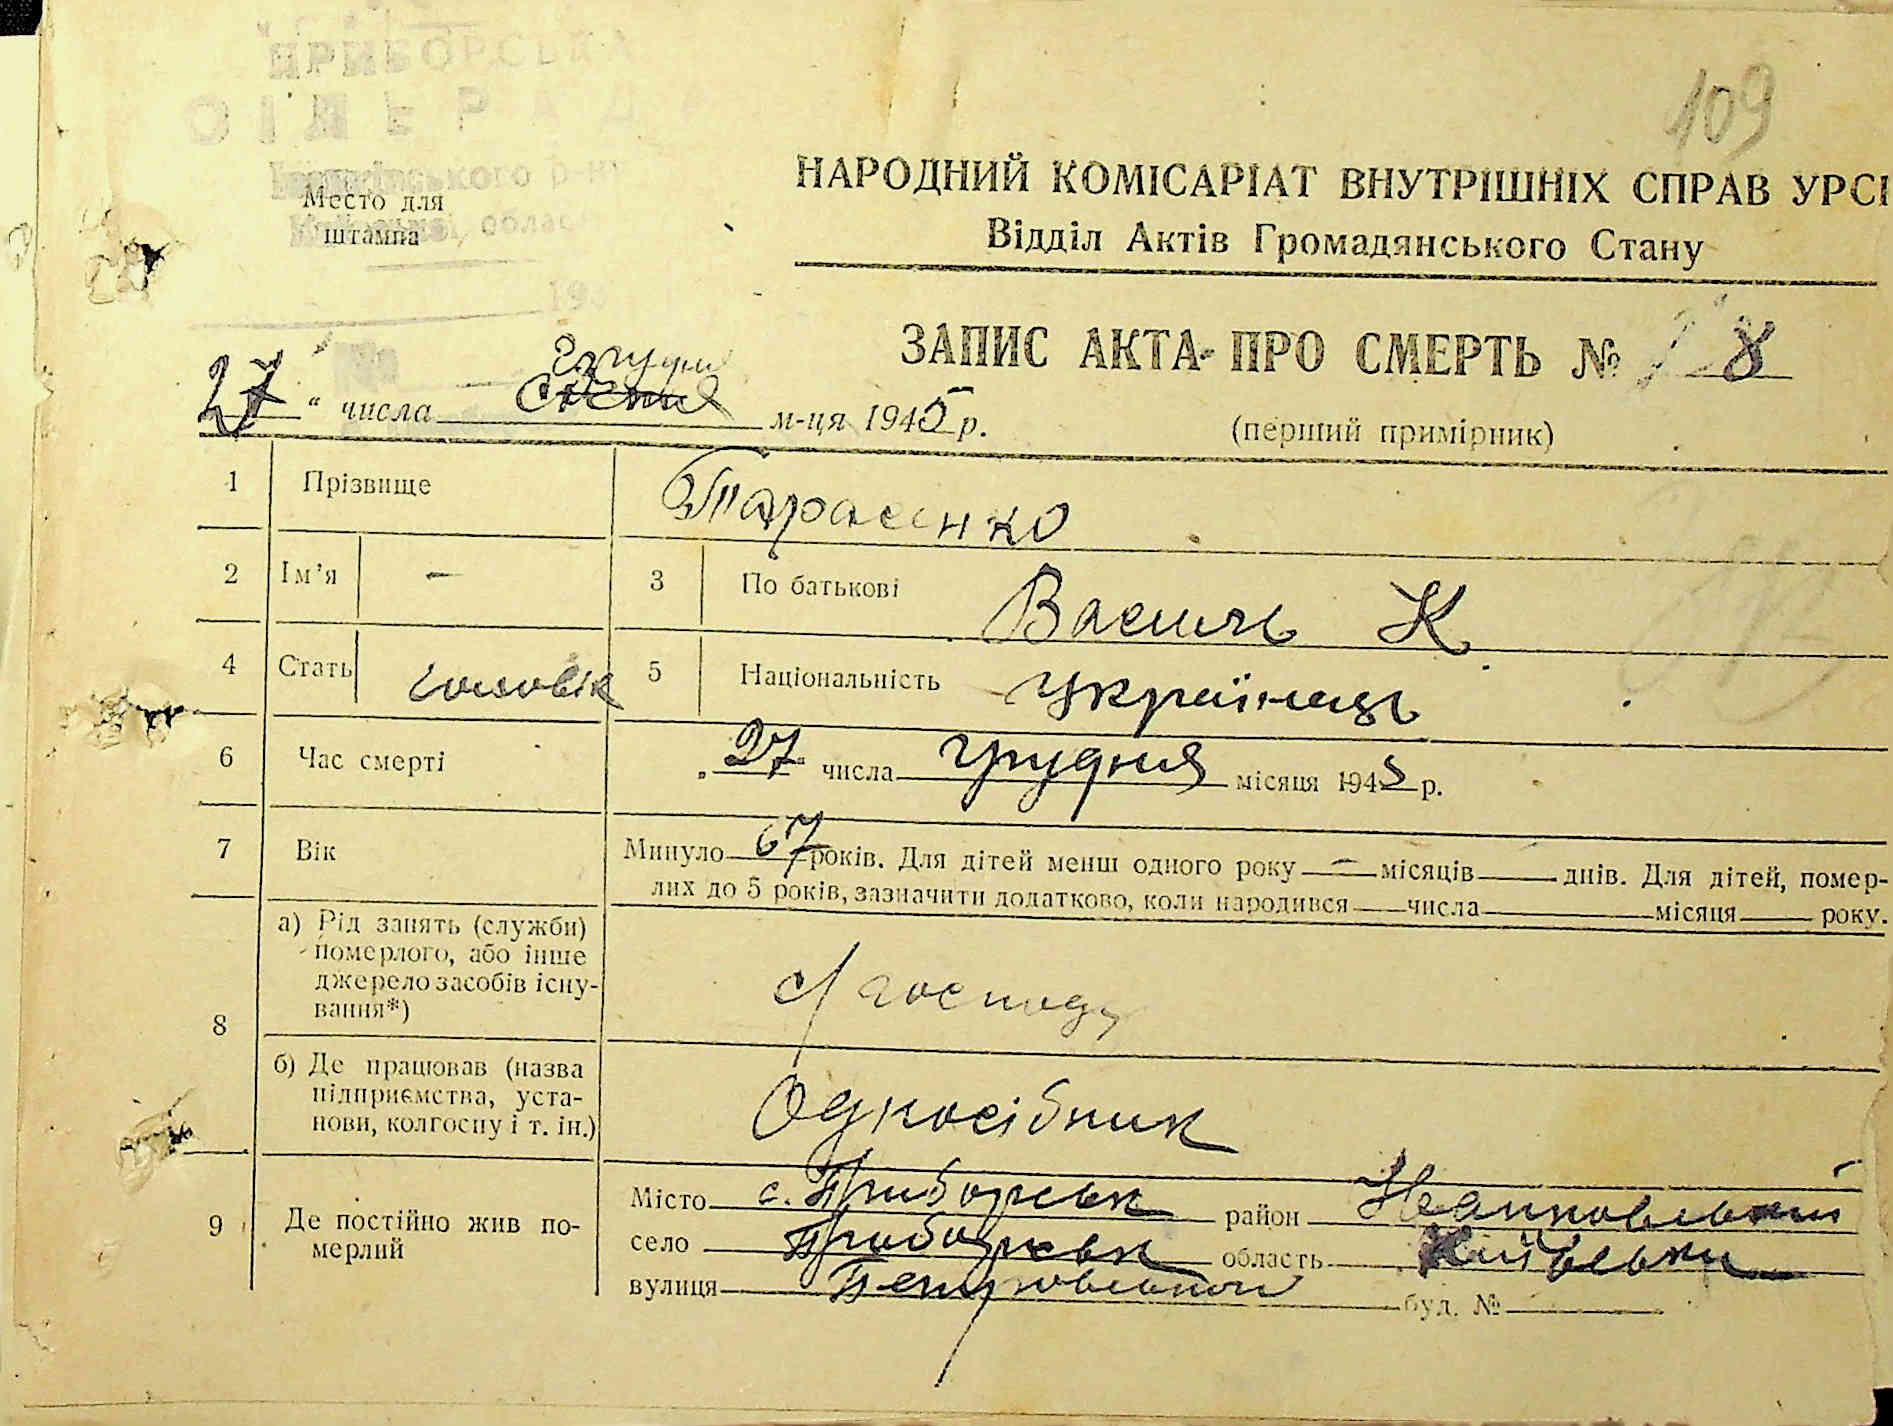 109
ПРИБОРСЬКА
СІЛЬРАДА
Место для
штампа
НАРОДНИЙ КОМІСАРІАТ ВНУТРІШНІХ СПРАВ УРСР
Відділ Актів Громадянського Стану
ЗАПИС АКТА ПРО СМЕРТЬ №
(перший примірник)
грудня
27 " числа січня м-ця 1945 р.
1 Прізвище Тарасенко
2 Ім'я — 3 По батькові Василь К
4 Стать чоловік 5 Національність українець
6 Час смерті „27" числа грудня місяця 1945 р.
7 Вік Минуло 67 років. Для дітей менш одного року — місяців днів. Для дітей, помер-
лих до 5 років, зазначити додатково, коли народився числа місяця року.
8 а) Рід занять (служби)
померлого, або інше
джерело засобів існу-
вання*)
с/господ
б) Де працював (назва
підприємства, уста-
нови, колгоспу і т. ін.)
Одноосібник
9 Де постійно жив по-
мерлий
Місто с. Приборськ район Іванковський
село Приборськ область Київська
вулиця буд. №